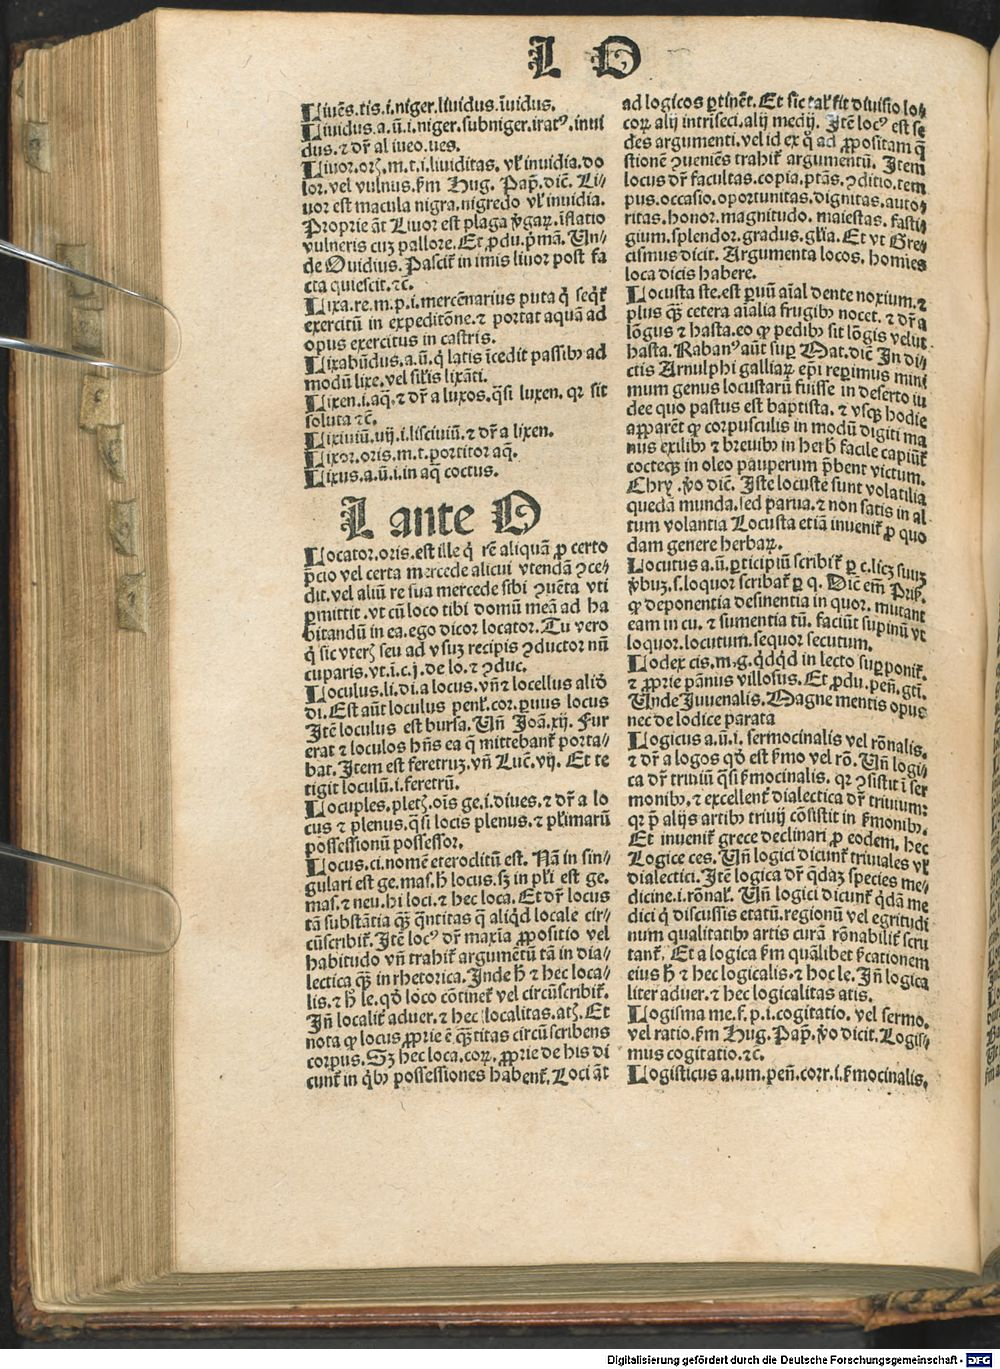 L O
Liuēs.tis.i.niger.liuidus.īuidus.
Liuidus.a.ū.i.niger.subniger.iratꝰ.inui
dus.⁊ dr̄ al iueo.ues.
Liuor.orꝫ.m.t.i.liuiditas. vl̓ inuidia.do
lor.vel vulnus.ẜm Hug. Pap̄.dic̄. Li⸗
uor est macula nigra.nigredo vl̓ inuidia.
Proprie āt Liuor est plaga v̓gaꝝ.īflatio
vulneris cuꝫ pallore.Et ꝓdu.p̄mā. Un⸗
de Ouidius. Pascit̄ in imis liuor post fa
cta quiescit.⁊c̄.
Lixa.re.m.p.i.mercēnarius puta q̄ seqt̄
exercitū in expeditōne.⁊ portat aquā ad
opus exercitus in castris.
Lixabūdus.a.ū.q̄ latis īcedit passibꝫ ad
modū lixe.vel sil̓is lixāti.
Lixen.i.aq̄.⁊ dr̄ a luxos.q̄si luxen. qꝛ sit
soluta ⁊c̄.
Lixiuiū.uij.i.lisciuiū.⁊ dr̄ a lixen.
Lixor.oris.m.t.portitor aq̄.
Lixus.a.ū.i.in aq̄ coctus.
L ante O
Locator.oris.est ille q̄ rē aliquā ꝓ certo
p̄cio vel certa mercede alicui vtendā ꝯce⸗
dit.vel aliū re sua mercede sibi ꝯuēta vti
ꝑmittit.vt cū loco tibi domū meā ad ha
bitandū in ea.ego dicor locator.Tu vero
q̄ sic vterꝫ seu ad vsuꝫ recipis ꝯductor nū
cuparis.vt.i.c.j.de lo.⁊ ꝯduc.
Loculus.li.di.a locus.vn̄ ⁊ locellus aliō
di.Est aūt loculus penl̓.cor.ꝑuus locus
Itē loculus est bursa. Un̄ Joā.xij. Fur
erat ⁊ loculos hn̄s ea q̄ mittebant̄ porta⸗
bat. Item est feretruꝫ.vn̄ Luc̄.vij. Et te
tigit loculū.i.feretrū.
Locuples.pletꝫ.oīs ge.i.diues.⁊ dr̄ a lo
cus ⁊ plenus.q̄si locis plenus.⁊ pl̓imarū
possessionū possessor.
Locus.ci.nomē eteroclitū est. Nā in sin⸗
gulari est ge.mas.h̄ locus.sꝫ in pl̓i est ge.
mas.⁊ neu.hi loci.⁊ hec loca.Et dr̄ locus
tā substātia qꝫ̄ q̄ntitas q̄ aliqd̄ locale cir⸗
cūscribit̄. Itē locꝰ dr̄ maxīa ꝓpositio vel
habitudo vn̄ trahit̄ argumētū tā in dia⸗
lectica qꝫ̄ in rhetorica. Inde h̄ ⁊ hec loca⸗
lis.⁊ h̄ le.qō loco cōtinet̄ vel circūscribit̄.
In̄ localit̓ aduer.⁊ hec localitas.atꝫ. Et
nota ꝙ locus ꝓprie ē qꝫ̄titas circūscribens
corpus. Sꝫ hec loca.coꝝ. ꝓprie de his di
cunt̄ in qbꝫ possessiones habent̄. Loci āt
ad logicos ꝑtinēt. Et sic tal̓ fit diuisio lo⸗
coꝝ.alij intrīseci.alij medij. Itē locꝰ est se
des argumenti.vel id ex q̄ ad ꝓpositam q̄
stionē ꝯueniēs trahit̄ argumentū. Item
locus dr̄ facultas.copia.ptās.ꝯditio.tem
pus.occasio.oportunitas.dignitas.auto⸗
ritas.honor.magnitudo. maiestas. fasti⸗
gium.splendor.gradus.gl̓ia. Et vt Gre⸗
cismus dicit. Argumenta locos. homies
loca dicis habere.
Locusta ste.est ꝑuū aīal dente noxium.⁊
plus qꝫ̄ cetera aīalia frugibꝫ nocet. ⁊ dr̄ a
lōgus ⁊ hasta.eo ꝙ pedibꝫ sit lōgis velut
hasta. Rabanꝰ aūt suꝑ Mat.dic̄ In di⸗
ctis Arnulphi galliaꝝ ep̄i reꝑimus mini
mum genus locustarū fuisse in deserto iu
dee quo pastus est baptista. ⁊ vsqꝫ hodie
apꝑaret ꝙ corpusculis in modū digiti ma
nus exilibꝫ ⁊ breuibꝫ in herb̄ facile capiūt̄
cocteqꝫ in oleo pauperum p̄bent victum.
Chry .v̓o dic̄. Iste locuste sunt volatilia
quedā munda.sed parua.⁊ non satis in al
tum volantia Locusta etiā inuenit̄ ꝓ quo
dam genere herbaꝝ.
Locutus a.ū.ꝑticipiū scribit̄ ꝑ c.licꝫ suuꝫ
v̓buꝫ.s.loquor scribat̄ ꝑ q. Dic̄ em̄ Pris̄.
ꝙ deponentia desinentia in quor. mutant
eam in cu. ⁊ sumentia tū. faciūt supinū vt
loquor.locutum.sequor secutum.
Lodex cis.m.g.qd̄qd̄ in lecto suꝑponit̄.
⁊ ꝓprie pānus villosus. Et ꝓdu.pen̄.gt̄i.
Unde Juuenalis. Magne mentis opus
nec de lodice parata
Logicus a.ū.i. sermocinalis vel rōnalis.
⁊ dr̄ a logos qō est ẜmo vel rō. Un̄ logi⸗
ca dr̄ triuiū q̄si ẜmocinalis. qꝛ ꝯsistit ī ser
monibꝫ.⁊ excellent̄ dialectica dr̄ triuium:
qꝛ p̄ alijs artibꝫ triuij cōsistit in ẜmonibꝫ.
Et inuenit̄ grece declinari ꝓ eodem. hec
Logice ces. Un̄ logici dicunt̄ triuiales vl̓
dialectici. Itē logica dr̄ q̄daꝫ species me⸗
dicine.i.rōnal̓. Un̄ logici dicunt̄ q̄dā me
dici q̄ discussis etatū.regionū vel egritudi
num qualitatibꝫ artis curā rōnabilit̓ scru
tant̄. Et a logica ẜm quālibet ẜcationem
eius h̄ ⁊ hec logicalis.⁊ hoc le. In̄ logica
liter aduer.⁊ hec logicalitas atis.
Logisma me.f.p.i.cogitatio. vel sermo.
vel ratio.ẜm Hug. Pap̄. v̓o dicit. Logis⸗
mus cogitatio.⁊c.
Logisticus a.um.pen̄.corr.i.ẜmocinalis.
Digitalisierung gefördert durch die Deutsche Forschungsgemeinschaft - DFG